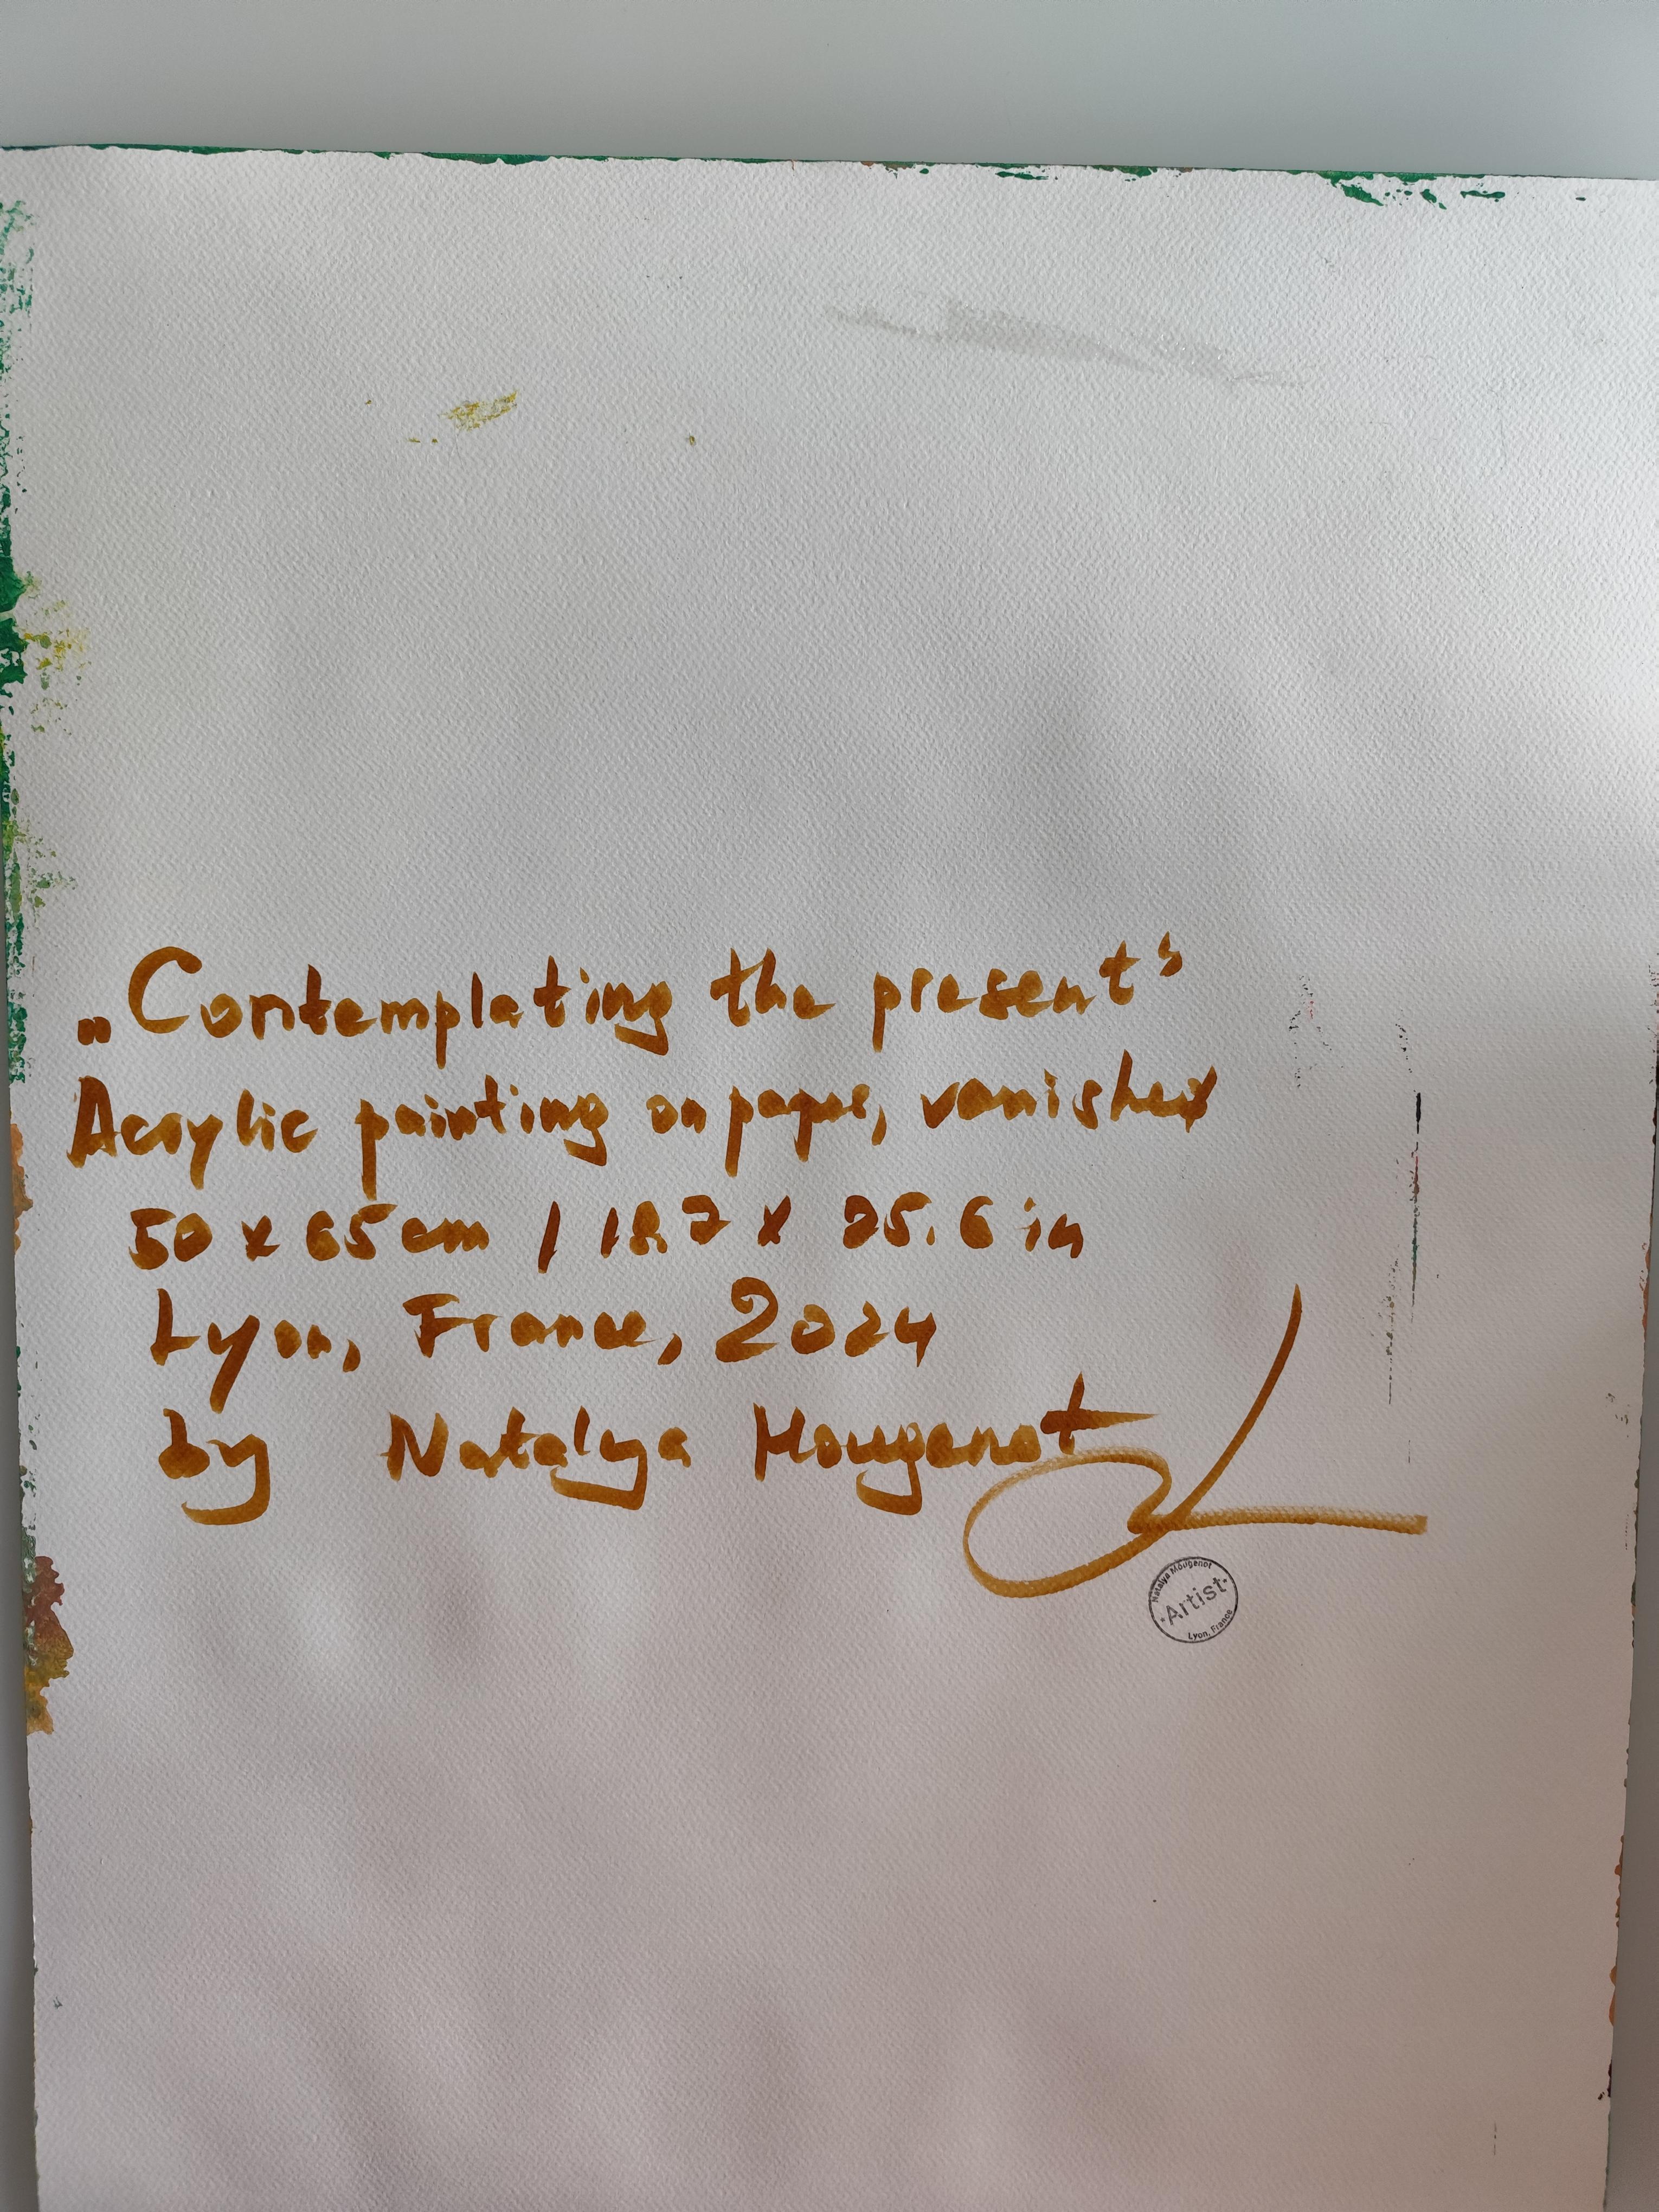 „Contemplating the present“
Acrylic painting on paper, vanished
50 x 65 cm / 18.7 x 25.6 in
Lyon, France, 2024
by Natalya Mougenot
Natalya Mougenot
• Artist •
Lyon, France